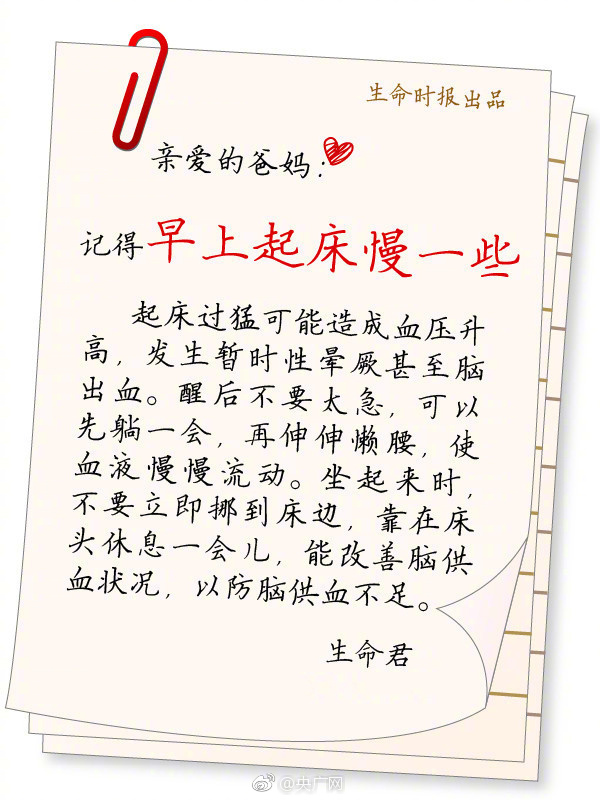 生命时报出品
亲爱的爸妈：
记得早上起床慢一些
起床过猛可能造成血压升
高，发生暂时性晕厥甚至脑
出血。醒后不要太急，可以
先躺一会，再伸伸懒腰，使
血液慢慢流动。坐起来时，
不要立即挪到床边，靠在床
头休息一会儿，能改善脑供
血状况，以防脑供血不足。
生命君
@央广网